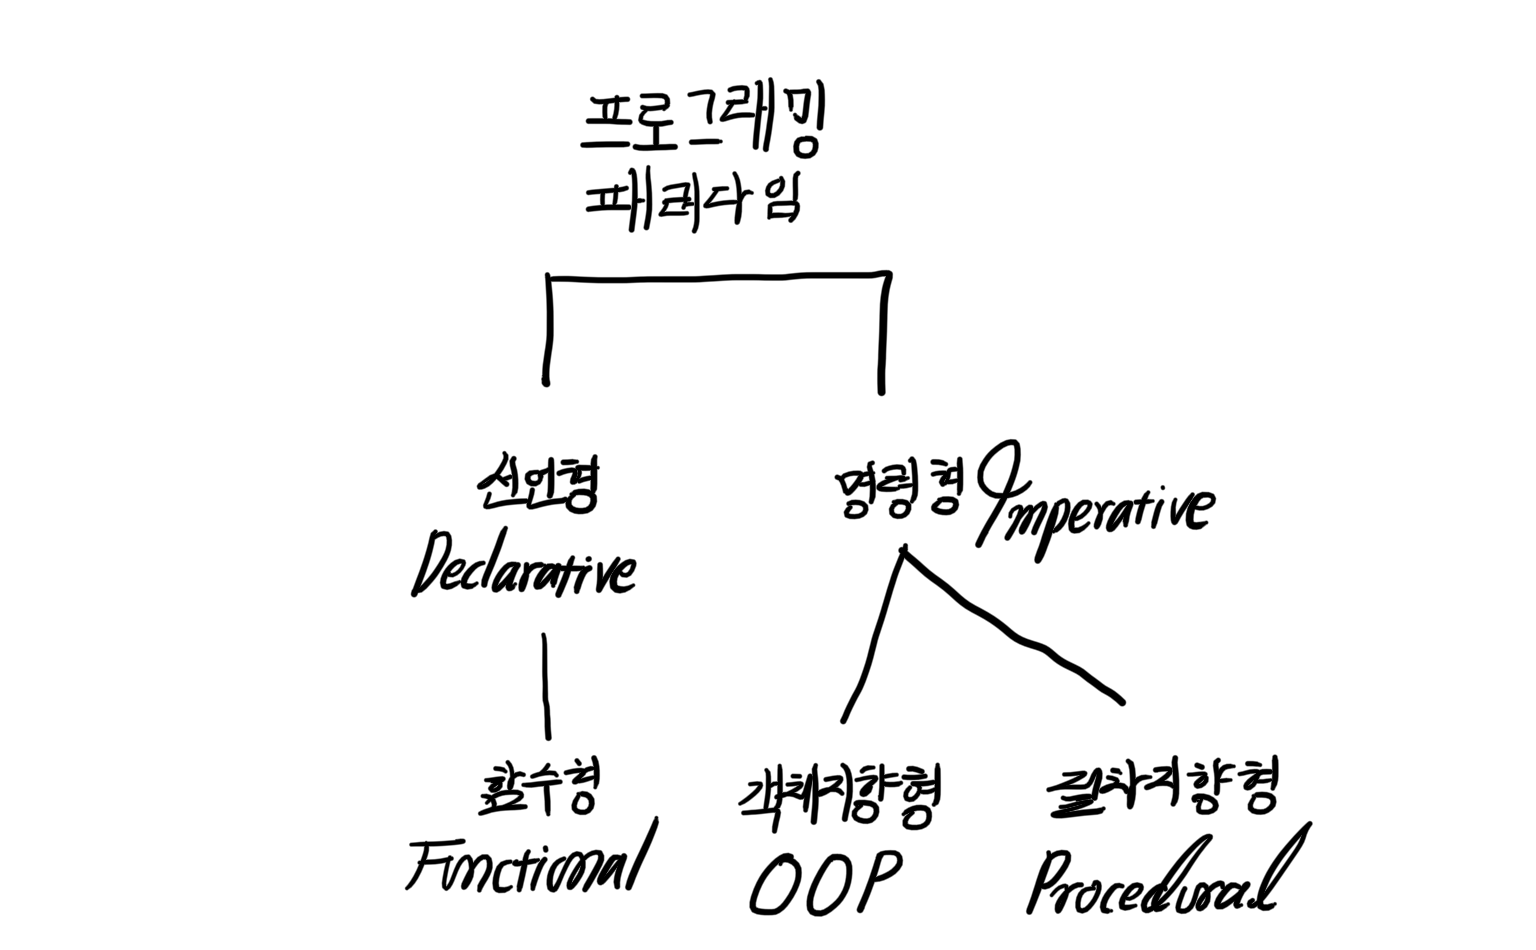 프로그래밍
패러다임
선언형
Declarative
명령형 Imperative
함수형
Functional
객체지향형
OOP
절차지향형
Procedural